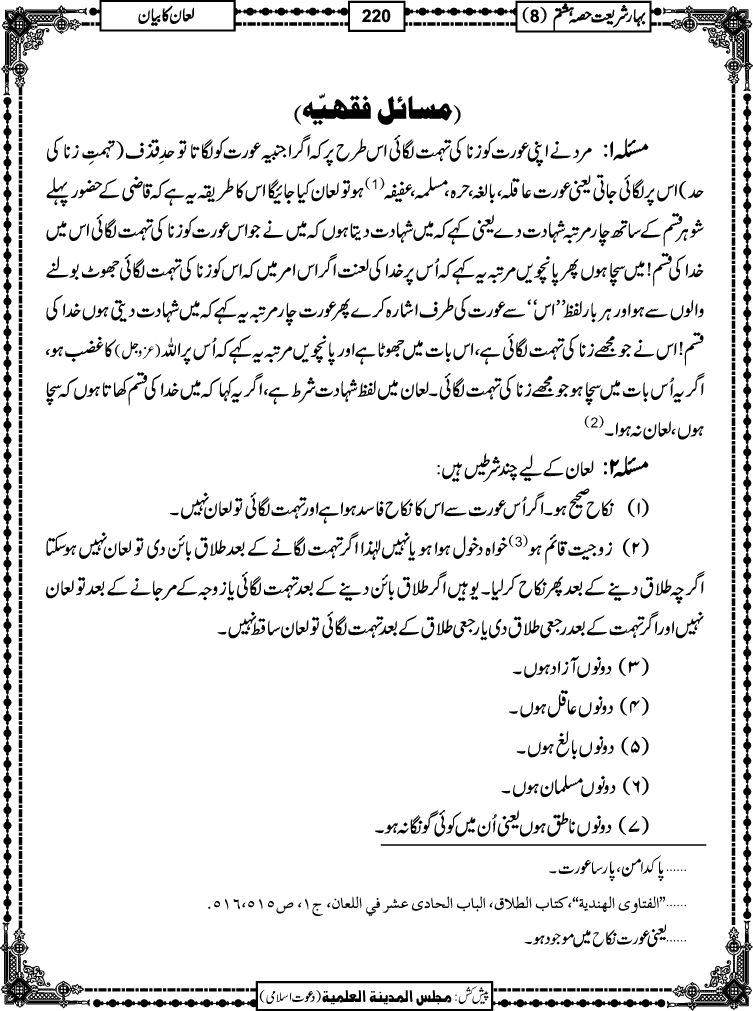 بہارِ شریعت حصہ ہشتم (8)
220
لعان کا بیان
(مسائل فقهیّه)
مسئلہ ۱: مرد نے اپنی عورت کو زنا کی تہمت لگائی اس طرح پر کہ اگر اجنبیہ عورت کو لگاتا تو حدِ قذف (تہمتِ زنا کی
حد) اس پر لگائی جاتی یعنی عورت عاقلہ، بالغہ، حرہ، مسلمہ، عفیفہ(1) ہو تو لعان کیا جائیگا اس کا طریقہ یہ ہے کہ قاضی کے حضور پہلے
شوہر قسم کے ساتھ چار مرتبہ شہادت دے یعنی کہے کہ میں شہادت دیتا ہوں کہ میں نے جو اس عورت کو زنا کی تہمت لگائی اس میں
خدا کی قسم! میں سچا ہوں پھر پانچویں مرتبہ یہ کہے کہ اُس پر خدا کی لعنت اگر اس امر میں کہ اس کو زنا کی تہمت لگائی جھوٹ بولنے
والوں سے ہو اور ہر بار لفظ ’’اس‘‘ سے عورت کی طرف اشارہ کرے پھر عورت چار مرتبہ یہ کہے کہ میں شہادت دیتی ہوں خدا کی
قسم! اس نے جو مجھے زنا کی تہمت لگائی ہے، اس بات میں جھوٹا ہے اور پانچویں مرتبہ یہ کہے کہ اُس پر اللہ (عزوجل) کا غضب ہو،
اگر یہ اُس بات میں سچا ہو جو مجھے زنا کی تہمت لگائی۔ لعان میں لفظ شہادت شرط ہے، اگر یہ کہا کہ میں خدا کی قسم کھاتا ہوں کہ سچا
ہوں، لعان نہ ہوا۔(2)
مسئلہ ۲: لعان کے لیے چند شرطیں ہیں:
(۱) نکاح صحیح ہو۔ اگر اُس عورت سے اس کا نکاح فاسد ہوا ہے اور تہمت لگائی تو لعان نہیں۔
(۲) زوجیت قائم ہو(3) خواہ دخول ہوا ہو یا نہیں لہٰذا اگر تہمت لگانے کے بعد طلاق بائن دی تو لعان نہیں ہوسکتا
اگرچہ طلاق دینے کے بعد پھر نکاح کرلیا۔ یوہیں اگر طلاق بائن دینے کے بعد تہمت لگائی یا زوجہ کے مرجانے کے بعد تو لعان
نہیں اور اگر تہمت کے بعد رجعی طلاق دی یا رجعی طلاق کے بعد تہمت لگائی تو لعان ساقط نہیں۔
(۳) دونوں آزاد ہوں۔
(۴) دونوں عاقل ہوں۔
(۵) دونوں بالغ ہوں۔
(۶) دونوں مسلمان ہوں۔
(۷) دونوں ناطق ہوں یعنی اُن میں کوئی گونگا نہ ہو۔
......پاکدامن، پارسا عورت۔
......"الفتاوی الهندية"، کتاب الطلاق، الباب الحادی عشر في اللعان، ج۱، ص۵۱۵،۵۱۶.
......یعنی عورت نکاح میں موجود ہو۔
پیش کش: مجلس المدينة العلمية (دعوت اسلامی)